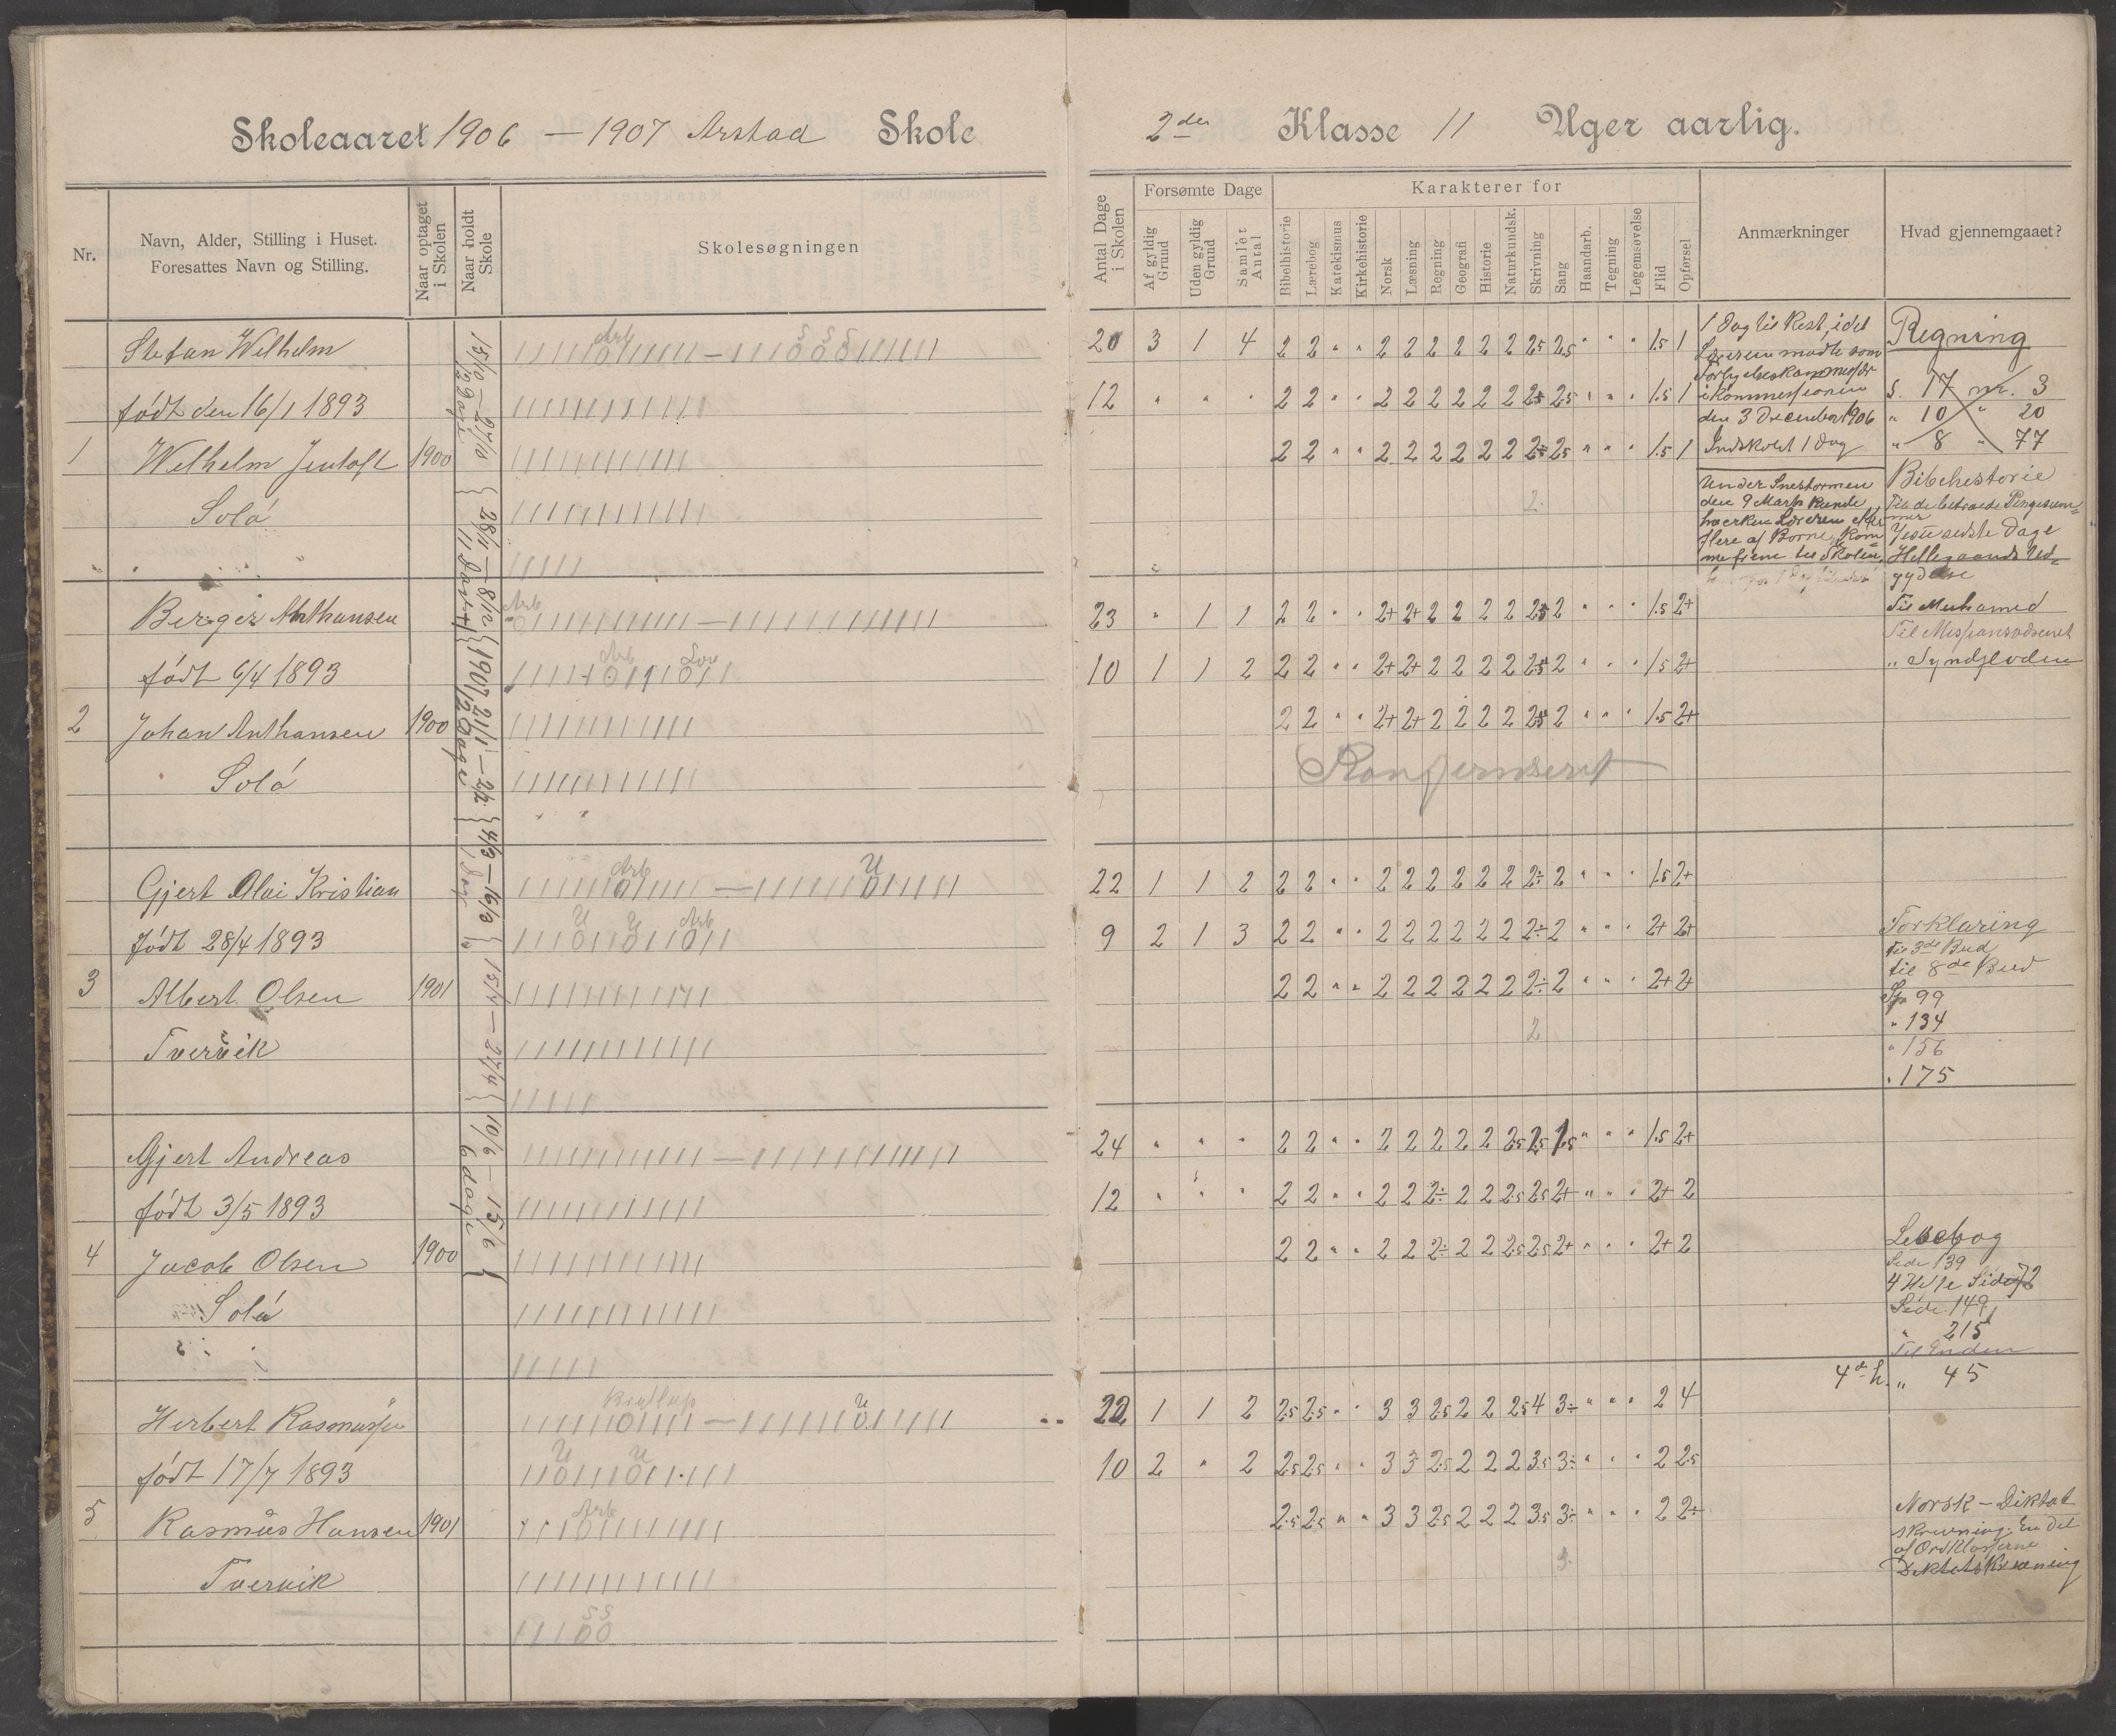 Skoleaaret 1906 — 1907 Arstad Skole
2den Klasse 11 Uger aarlig.
Nr.
Navn, Alder, Stilling i Huset.
Foresattes Navn og Stilling.
Naar optaget i Skolen
Naar holdt Skole
Skolesøgningen
Antal Dage i Skolen
Forsømte Dage
Af gyldig Grund
Uden gyldig Grund
Samlet Antal
Karakterer for
Bibelhistorie
Lærebog
Katekismus
Kirkehistorie
Norsk
Læsning
Regning
Geografi
Historie
Naturkundsk.
Skrivning
Sang
Haandarb.
Tegning
Legemsøvelse
Flid
Opførsel
Anmærkninger
Hvad gjennemgaaet?
15/10 – 27/10
12 Dage
28/11 – 8/12
11 Dage
1907 21/1 – 2/2
12 Dage
4/3 – 16/3
15/4 – 27/4
10/6 – 15/6
6 dage
Stefan Wilhelm
Arb
S S S
20 3 1 4 2 2 " " 2 2 2 2 2 2 2.5 2.5 " " " 1.5 1
født den 16/1 1893
12 " " " 2 2 " " 2 2 2 2 2 2 2.5 2.5 " " " 1.5 1
1 Wilhelm Jentoft 1900
2 2 " " 2 2 2 2 2 2 2÷ 2.5 " " " 1.5 1
Solå
2
1 Dag til Rest, idet
Læreren mødte som
i Kommissionen
den 3 December 1906
Indskoled 1 Dag
Under Snestormen
den 9 Marts kunde
hverken Læreren eller
flere af Børne kom
me frem til Skolen.
Regning
S. 17 nr. 3
" 10 " 20
" 8 " 77
Bibelhestorie
Til de betroede Pengesum=
mer
Jesu sidste Dage
Helligaands Ud=
gydelse
Til Muhamed
Til Missionsvæsenet
" Syndfloden
Berger Anthansen
Arb
23 " 1 1 2 2 " " 2+ 2+ 2 2 2 2 2.5 2 " " " 1.5 2+
født 6/4 1893
Arb Lov
10 1 1 2 2 2 " " 2+ 2+ 2 2 2 2 2.5 2 " " " 1.5 2+
2 Johan Anthansen 1900
2 2 " " 2+ 2+ 2 2 2 2 2.5 2 " " " 1.5 2+
Solå
Konfermeret
Gjert Olai Kristian
Arb U
22 1 1 2 2 2 " " 2 2 2 2 2 2 2÷ 2 " " " 1.5 2+
født 28/4 1893
U U Arb
9 2 1 3 2 2 " " 2 2 2 2 2 2 2÷ 2 " " " 2+ 2+
3 Albert Olsen 1901
2 2 " " 2 2 2 2 2 2 2÷ 2 " " " 2+ 2+
Tvervik
2
Forklaring
Til 3de Bud
til 8de Bud
Sp 99
" 134
" 156
" 175
Gjert Andreas
24 " " " 2 2 " " 2 2 2 2 2 2.5 2.5 1.5 " " " 1.5 2+
født 3/5 1893
12 " " " 2 2 " " 2 2 2÷ 2 2 2.5 2.5 2+ " " " 2+ 2
4 Jacob Olsen 1900
2 2 " " 2 2 2÷ 2 2 2.5 2.5 2+ " " " 2+ 2
Solå
Lesebog
Side 139
4 Hefte Side 72
Side 149
" 215
Til Enden
4de h. " 45
Herbert Rasmussen
Bryllup U
22 1 1 2 2.5 2.5 " " 3 3 2.5 2 2 2.5 4 3÷ " " " 2 4
født 17/7 1893
U U
10 2 " 2 2.5 2.5 " " 3 3 2.5 2 2 2 3.5 3÷ " " " 2 2.5
5 Rasmus Hansen 1901
Arb
2.5 2.5 " " 3 3 2.5 2 2 2 3.5 3÷ " " " 2 2÷
Tvervik
S S
Norsk – Diktat
skrivning. En del
af Ordklasserne
Diktatskrivning